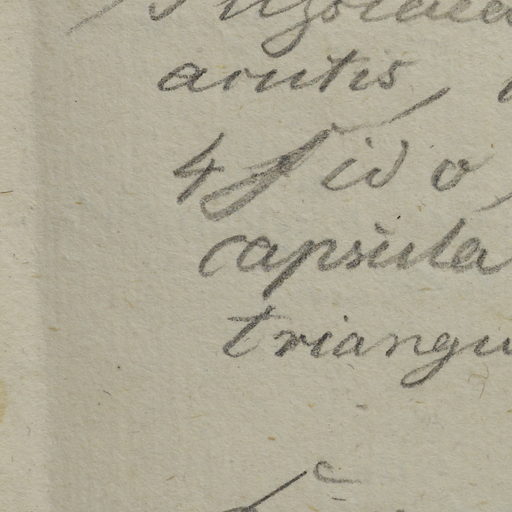 acutis,
4 fido,
capsula
triangu